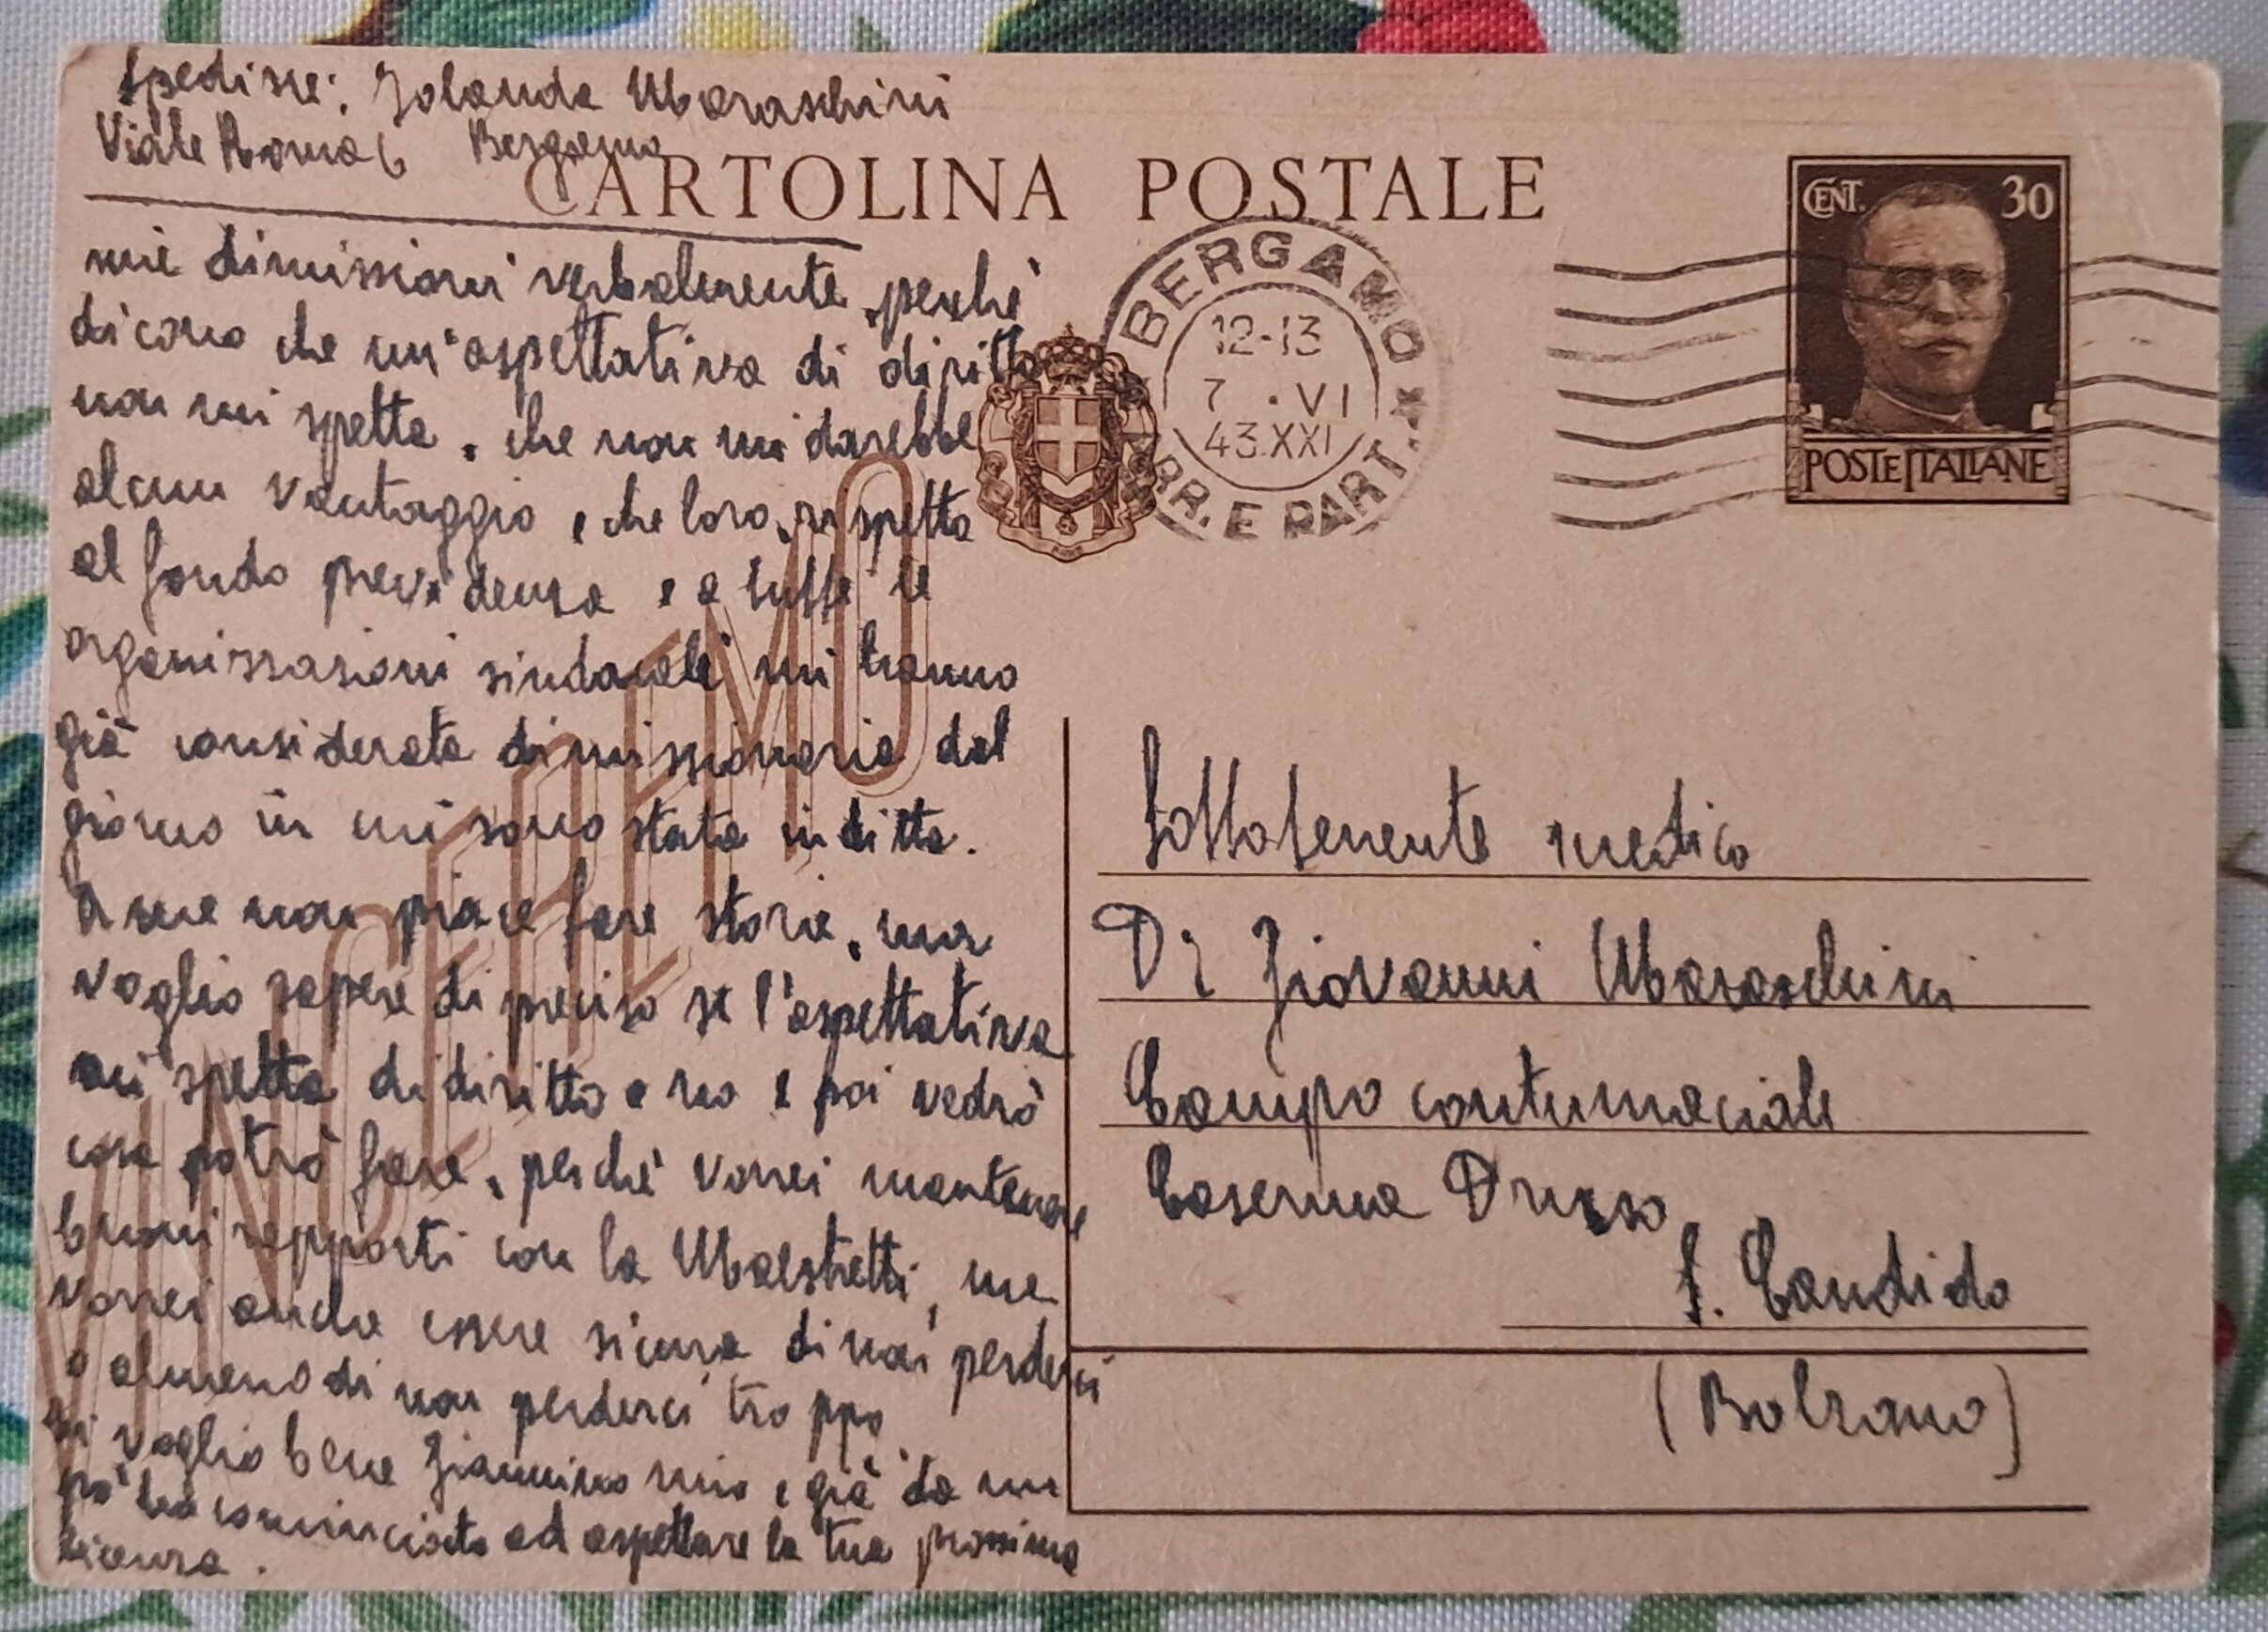 Spedisce: Jolanda Maraschini
Viale Roma 6 Bergamo
CARTOLINA POSTALE
CENT. 30
POSTE ITALIANE
BERGAMO
12-13
7 . VI
43.XXI
ARR. E PART.
VINCEREMO
mie dimissioni verbalmente, perchè
dicono che un'aspettativa di diritto
non mi spetta, che non mi darebbe
alcun vantaggio e che loro, rispetto
al fondo previdenza e a tutte le
organizzazioni sindacali mi hanno
già considerata dimissionaria dal
giorno in cui sono stata in ditta.
A me non piace fare storie, ma
voglio sapere di preciso se l'aspettativa
mi spetta di diritto o no e poi vedrò
cosa potrò fare, perchè vorrei mantenere
buoni rapporti con la Maestretti, ma
vorrei anche essere sicura di non perderci
o almeno di non perderci troppo
Ti voglio bene Giannino mio e già da un
po' ho cominciato ad aspettare la tua prossima
licenza.
Sottotenente medico
Dr Giovanni Maraschini
Campo contumaciale
Caserma Druso
S. Candido
(Bolzano)